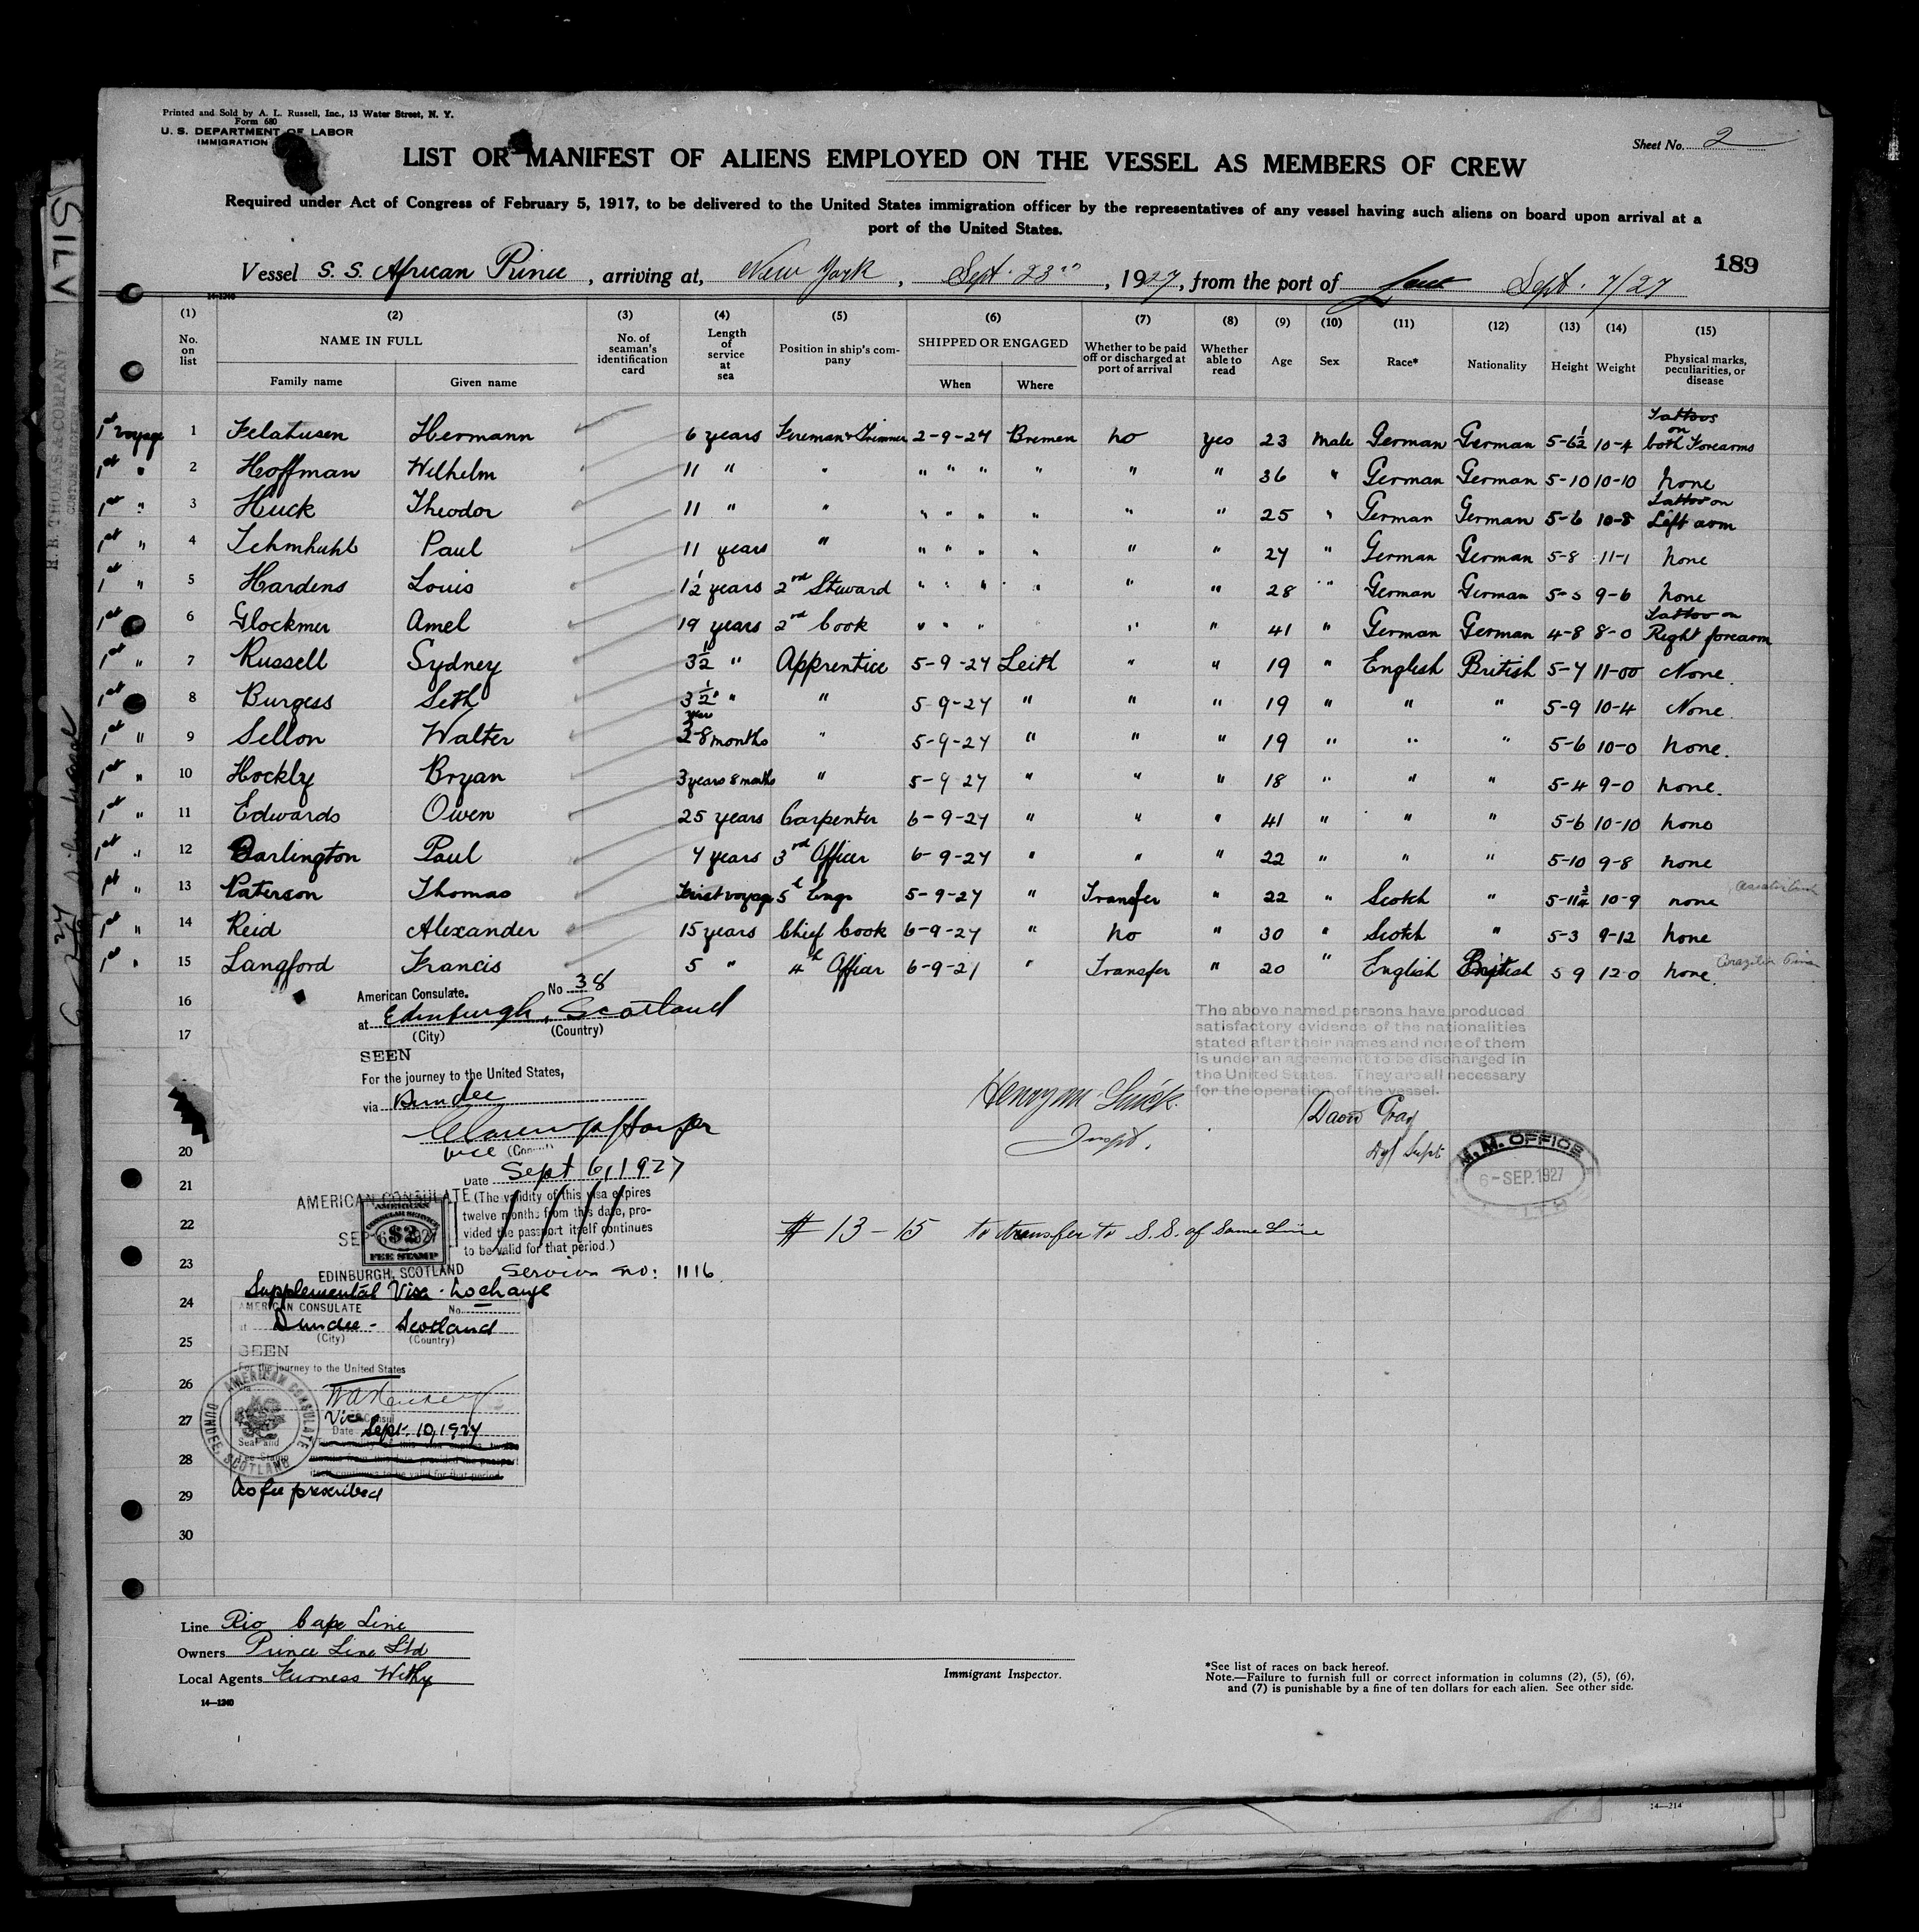 Printed and Sold by A. L. Russell, Inc., 13 Water Street, N. Y.
Form 680
U. S. DEPARTMENT OF LABOR
IMMIGRATION
Sheet No. 2
LIST OR MANIFEST OF ALIENS EMPLOYED ON THE VESSEL AS MEMBERS OF CREW
Required under Act of Congress of February 5, 1917, to be delivered to the United States immigration officer by the representatives of any vessel having such aliens on board upon arrival at a
port of the United States.
189
Vessel S. S. African Prince, arriving at, New York, Sept. 23rd, 1927, from the port of Sept. 7/27
14-1240
(1) (2) (3) (4) (5) (6) (7) (8) (9) (10) (11) (12) (13) (14) (15)
No. on list NAME IN FULL Family name Given name No. of seaman's identification card Length of service at sea Position in ship's company SHIPPED OR ENGAGED When Where Whether to be paid off or discharged at port of arrival Whether able to read Age Sex Race* Nationality Height Weight Physical marks, peculiarities, or disease
1st voyage 1 Felahusen Hermann 6 years Fireman & Trimmer 2-9-27 Bremen no yes 23 Male German German 5-6½ 10-4 Tattoos on both Forearms
1st " 2 Hoffman Wilhelm 11 " " " " " " " " 36 " German German 5-10 10-10 none
1st " 3 Huck Theodor 11 " " " " " " " " 25 " German German 5-6 10-8 Tattoo on Left arm
1st " 4 Tehmhuhl Paul 11 years " " " " " " " 27 " German German 5-8 11-1 none
1st " 5 Hardens Louis 1½ years 2nd Steward " " " " " " 28 " German German 5-5 9-6 none
1st 6 Glockmer Amel 19 years 2nd Cook " " " " " " 41 " German German 4-8 8-0 Tattoo on Right forearm
1st " 7 Russell Sydney 3½ " Apprentice 5-9-27 Leith " " 19 " English British 5-7 11-00 None.
1st 8 Burgess Seth 3½ " " 5-9-27 " " " 19 " " " 5-9 10-4 None.
1st " 9 Sellon Walter 8 months " 5-9-27 " " " 19 " " " 5-6 10-0 none.
1st " 10 Hockly Bryan 3 years 8 months " 5-9-27 " " " 18 " " " 5-4 9-0 none.
1st " 11 Edwards Owen 25 years Carpenter 6-9-27 " " " 41 " " " 5-6 10-10 none
1st " 12 Darlington Paul 7 years 3rd Officer 6-9-27 " " " 22 " " " 5-10 9-8 none
1st " 13 Paterson Thomas First voyage 5th Engr 5-9-27 " Transfer " 22 " Scotch " 5-11¾ 10-9 none
1st " 14 Reid Alexander 15 years Chief Cook 6-9-27 " no " 30 " Scotch " 5-3 9-12 none
1st " 15 Langford Francis 5 " 4th Officer 6-9-27 " Transfer " 20 " English British 5 9 12-0 none.
16
17
20
21
22
23
24
25
26
27
28
29
30
American Consulate. No 38
at Edinburgh, Scotland
(City) (Country)
SEEN
For the journey to the United States,
via Dundee
Vice
Date Sept 6, 1927
(The validity of this visa expires
twelve months from this date, pro-
vided the passport itself continues
to be valid for that period.)
Service no: 1116
AMERICAN CONSULATE
SEP 6 1927
EDINBURGH, SCOTLAND
AMERICAN
CONSULAR SERVICE
$2
FEE STAMP
The above named persons have produced
satisfactory evidence of the nationalities
stated after their names and none of them
is under an agreement to be discharged in
the United States. They are all necessary
for the operation of the vessel.
David Gray
M. M. OFFICE
6-SEP.1927
LEITH
Inspt.
# 13 - 15 to transfer to S.S. of Same Line
Supplemental Visa - No charge
AMERICAN CONSULATE No.
at Dundee - Scotland
(City) (Country)
SEEN
For the journey to the United States
Vice Consul
Date Sept. 10, 1927
AMERICAN CONSULATE
DUNDEE, SCOTLAND
Seal and
Fee Stamp
No fee prescribed
Line Rio Cape Line
Owners Prince Line Ltd
Local Agents Furness Withy
14-1240
Immigrant Inspector.
*See list of races on back hereof.
Note.—Failure to furnish full or correct information in columns (2), (5), (6),
and (7) is punishable by a fine of ten dollars for each alien. See other side.
14-214
H. B. THOMAS & COMPANY
CUSTOMS BROKERS
SILV